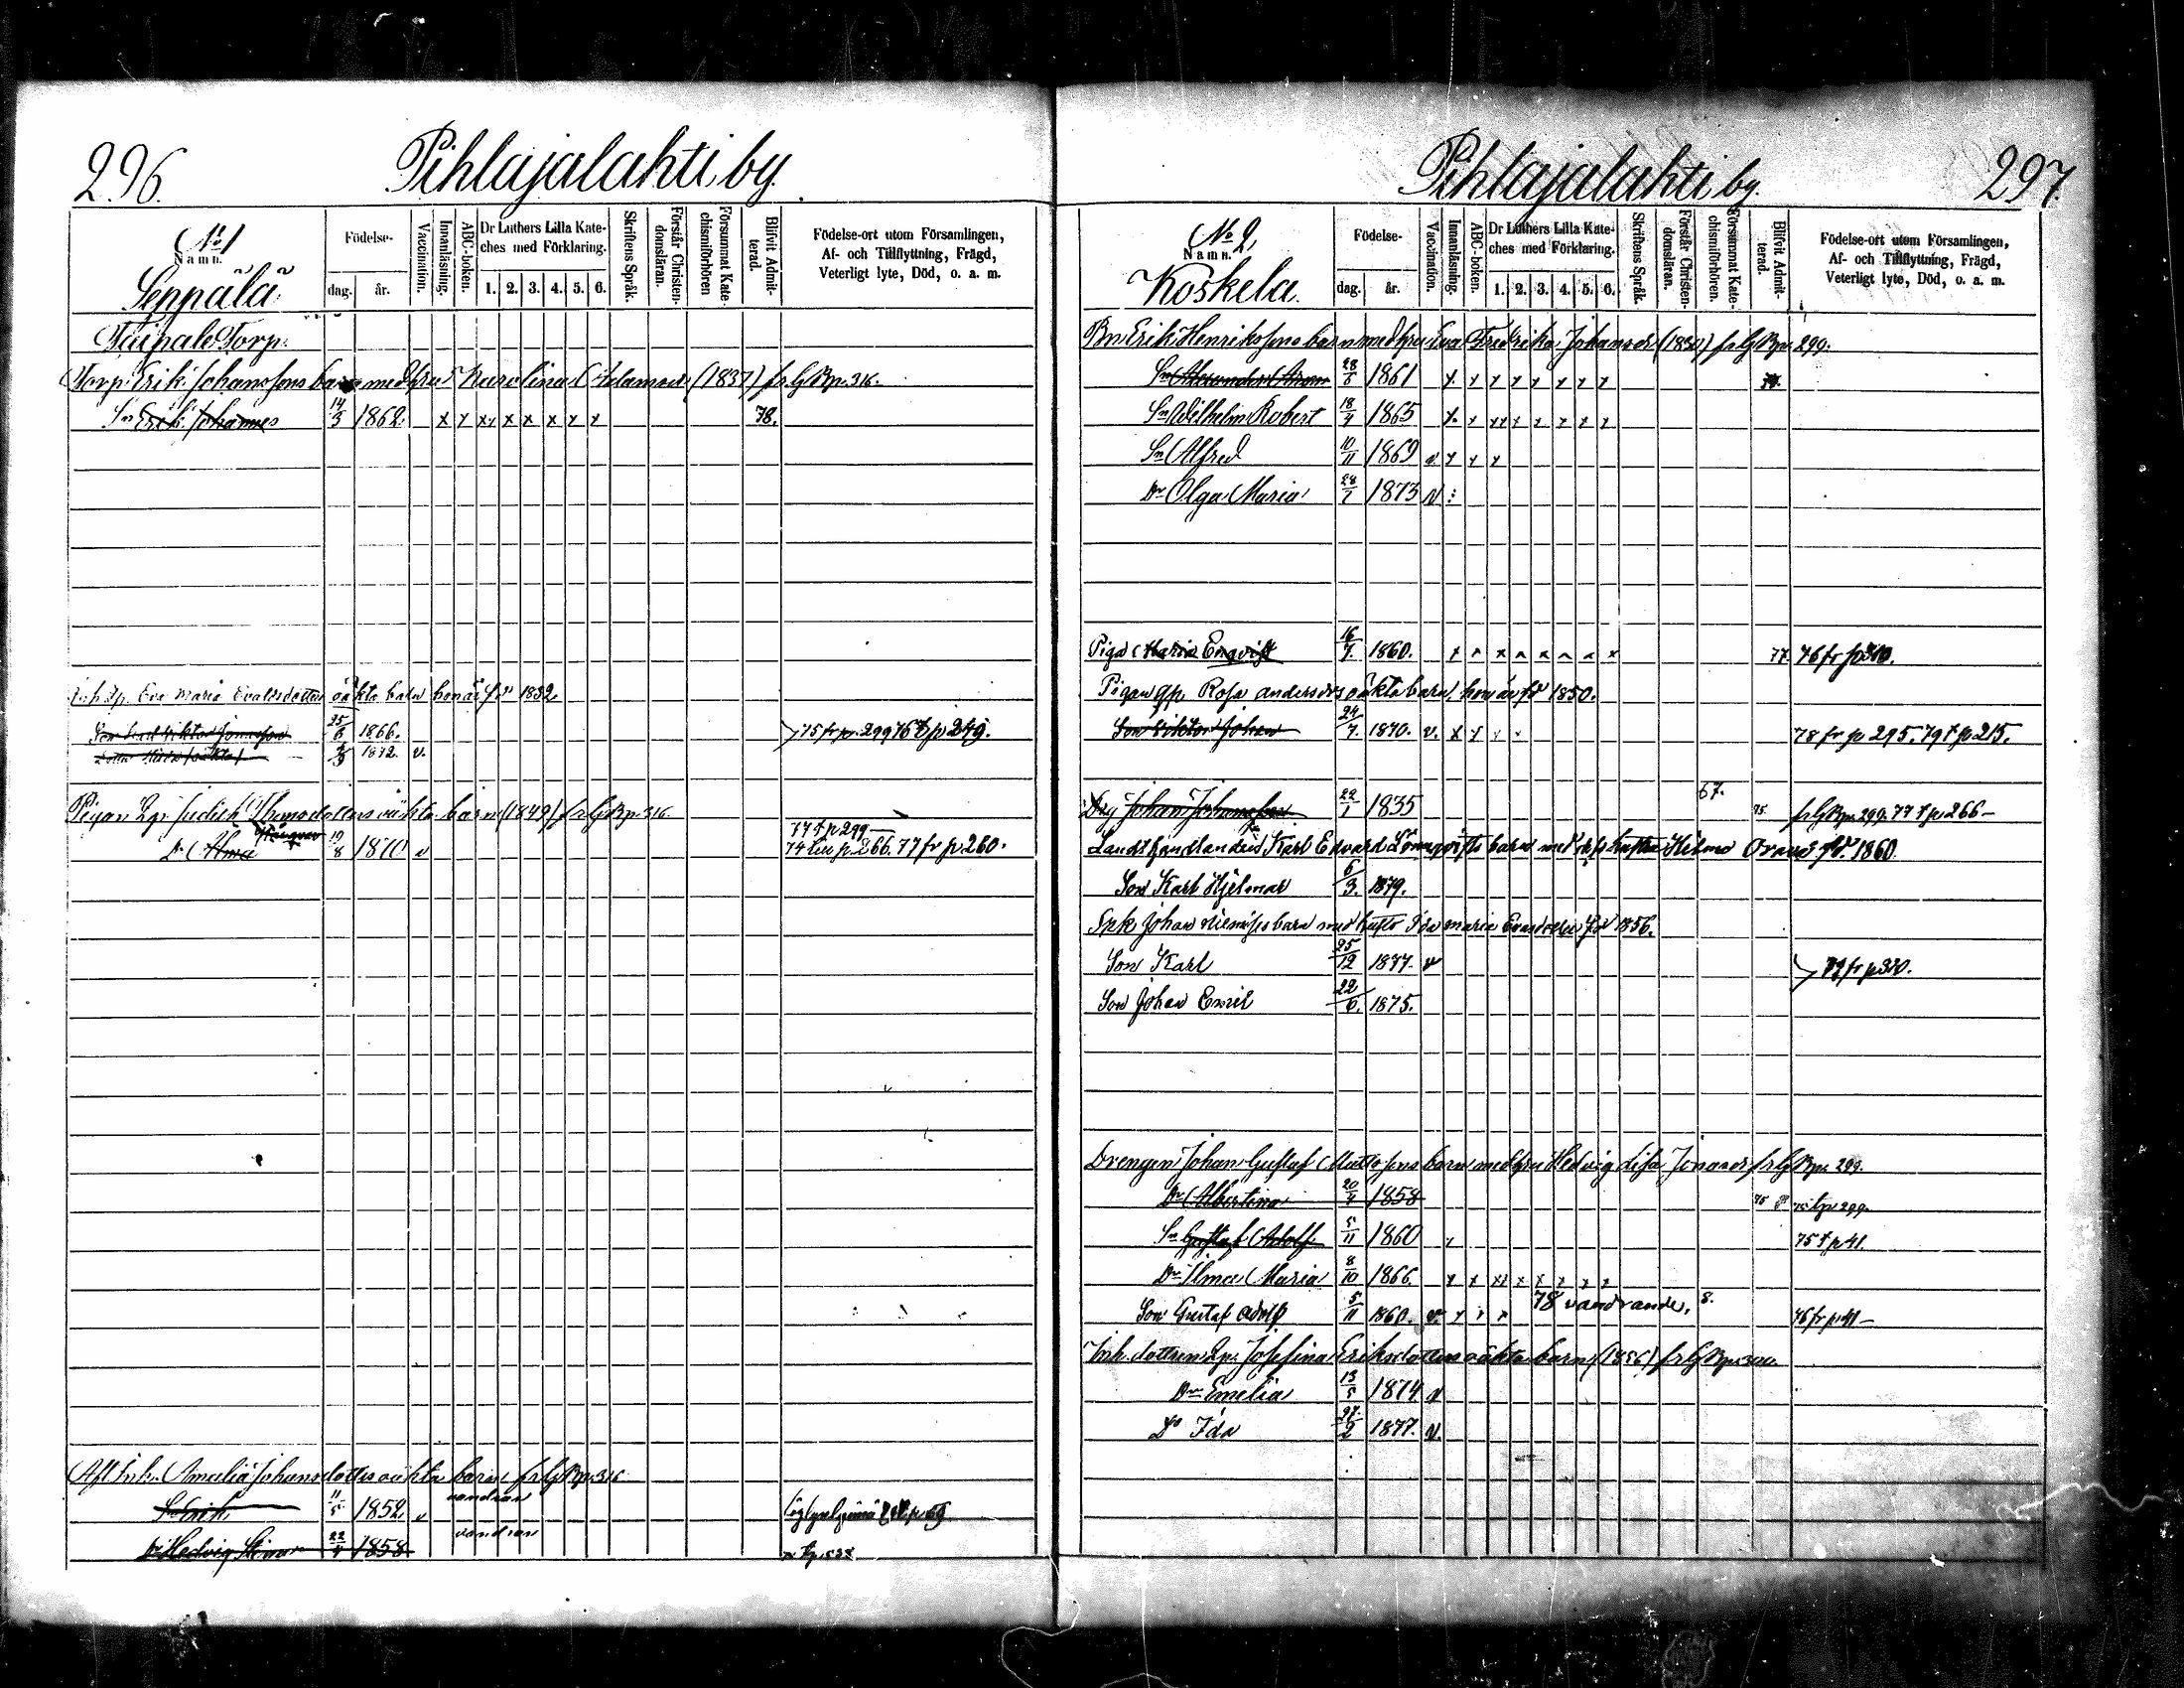 296.
Pihlajalahti by.
No 1
Namn.
Seppälä
Födelse-
dag.
år.
Vaccination.
Innanläsning.
ABC-boken.
Dr Luthers Lilla Kate-
ches med Förklaring.
1. 2. 3. 4. 5. 6.
Skriftens Språk.
Förstår Christen-
domsläran.
Försummat Kate-
chismiförhören
Blifvit Admit-
terad.
Födelse-ort utom Församlingen,
Af- och Tillflyttning, Frägd,
Veterligt lyte, Död, o. a. m.
Taipale Torp.
Torp. Erik Johanssons barn med hru Karolina Adamsdr (1837) fr lg Bp. 316.
Sn Erik Johannes 14/3 1862. x x xx x x x x x 78.
Eva Maria Evaldsdotters oäkta barn hon är fd 1832
Son Karl Viktor Jonasson 25/6 1866. 75 fr p. 299 76 t p 249.
1872. v.
Pigan Judith Thomsdotters oäkta barn (1849) fr lg Bp. 316.
77 t p 299
Dr Alma 19/8 1870 v 74 p. 266. 77 fr p 260.
Amalia Johansdotters oäkta barn fr lg Bp. 316
Sn Erik 11/5 1852 v vandrar
Dr Hedvig 22/4 1858 vandrar
297.
Pihlajalahti by.
No 2,
Namn.
Koskela.
Födelse-
dag.
år.
Vaccination.
Innanläsning.
ABC-boken.
Dr Luthers Lilla Kate-
ches med Förklaring.
1. 2. 3. 4. 5. 6.
Skriftens Språk.
Förstår Christen-
domsläran.
Försummat Kate-
chismiförhören.
Blifvit Admit-
terad.
Födelse-ort utom Församlingen,
Af- och Tillflyttning, Frägd,
Veterligt lyte, Död, o. a. m.
Bn Erik Henrikssons barn med hru Eva Fredrika Johansdr (1830) fr lg Bp. 299.
Sn Alexander 28/5 1861 x x x x x x x x
Sn Wilhelm Robert 18/4 1865 x x xx x x x x x
Sn Alfred 10/11 1869 v. x x x
Dr Olga Maria 28/1 1873 v
Pigan Maria Enqvist 16/7. 1860. x x x x x x x x 77 76 fr p 310.
Pigan Rosa Andersdrs oäkta barn, hon är fd 1850.
Son Viktor Johan 24/7. 1870. v. x x x x 78 fr p 295. 79 t p 215.
Drg Johan Johansson 22/1 1835 67. 75 fr lg Bp. 299. 77 t p 266
Landthandlanden Karl Edvard Lönnqvists barn med dess hustru Hilma fd. 1860.
Son Karl Hjelmar 6/3. 1879.
Johan barn med hustr Ida Maria fd 1856.
Son Karl 25/12 1877. v
Son Johan Emil 22/6. 1875.
Drengen Johan Gustaf Mattssons barn med hru Hedvig Lisa Jonasdr fr lg Bp. 299.
Dr Albertina 20/4 1858 75 t p 299.
Sn Gustaf Adolf 5/11 1860 x 75 t p 41.
Dr Ilma Maria 8/10 1866 x x xx x x x x x
Son Gustaf Adolf 5/11 1860. v. x x x 78 vandrande, 8. 76 fr p 41
Inh. dottren Josefina Eriksdotters oäkta barn (1856) fr lg Bp. 300.
Dr Emelia 13/5 1874 v
Dr Ida 27/2 1877. v.